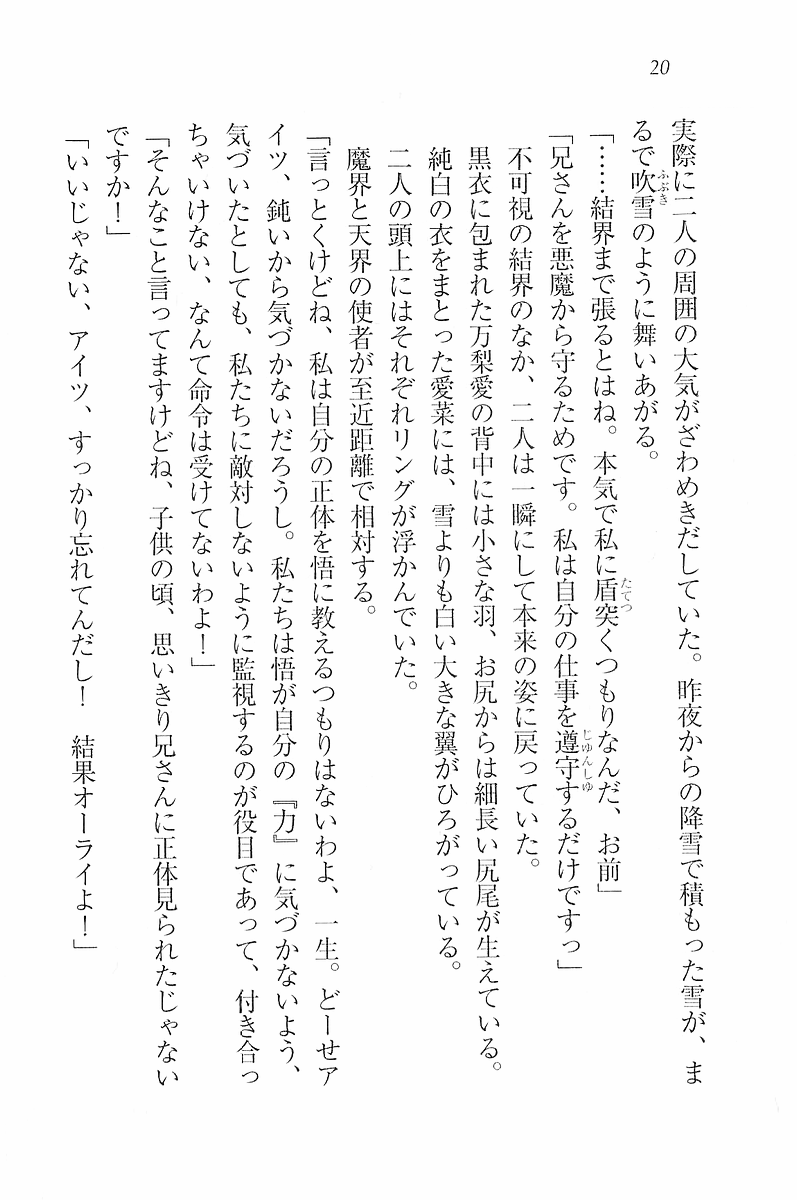 20
実際に二人の周囲の大気がざわめきだしていた。昨夜からの降雪で積もった雪が、ま
るで吹雪のように舞いあがる。
「……結界まで張るとはね。本気で私に盾突くつもりなんだ、お前」
「兄さんを悪魔から守るためです。私は自分の仕事を遵守するだけですっ」
不可視の結界のなか、二人は一瞬にして本来の姿に戻っていた。
黒衣に包まれた万梨愛の背中には小さな羽、お尻からは細長い尻尾が生えている。
純白の衣をまとった愛菜には、雪よりも白い大きな翼がひろがっている。
二人の頭上にはそれぞれリングが浮かんでいた。
魔界と天界の使者が至近距離で相対する。
「言っとくけどね、私は自分の正体を悟に教えるつもりはないわよ、一生。どーせア
イツ、鈍いから気づかないだろうし。私たちは悟が自分の『力』に気づかないよう、
気づいたとしても、私たちに敵対しないように監視するのが役目であって、付き合っ
ちゃいけない、なんて命令は受けてないわよ！」
「そんなこと言ってますけどね、子供の頃、思いきり兄さんに正体見られたじゃない
ですか！」
「いいじゃない、アイツ、すっかり忘れてんだし！　結果オーライよ！」